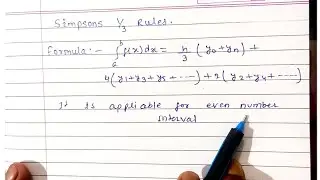 Simpsons 1/3 Rules.
Formula:- ∫ₐᵇ f(x)dx = h/3 (y₀+yₙ) +
4(y₁+y₃+y₅+---) + 2(y₂+y₄+----)
It is appliable for even number
interval